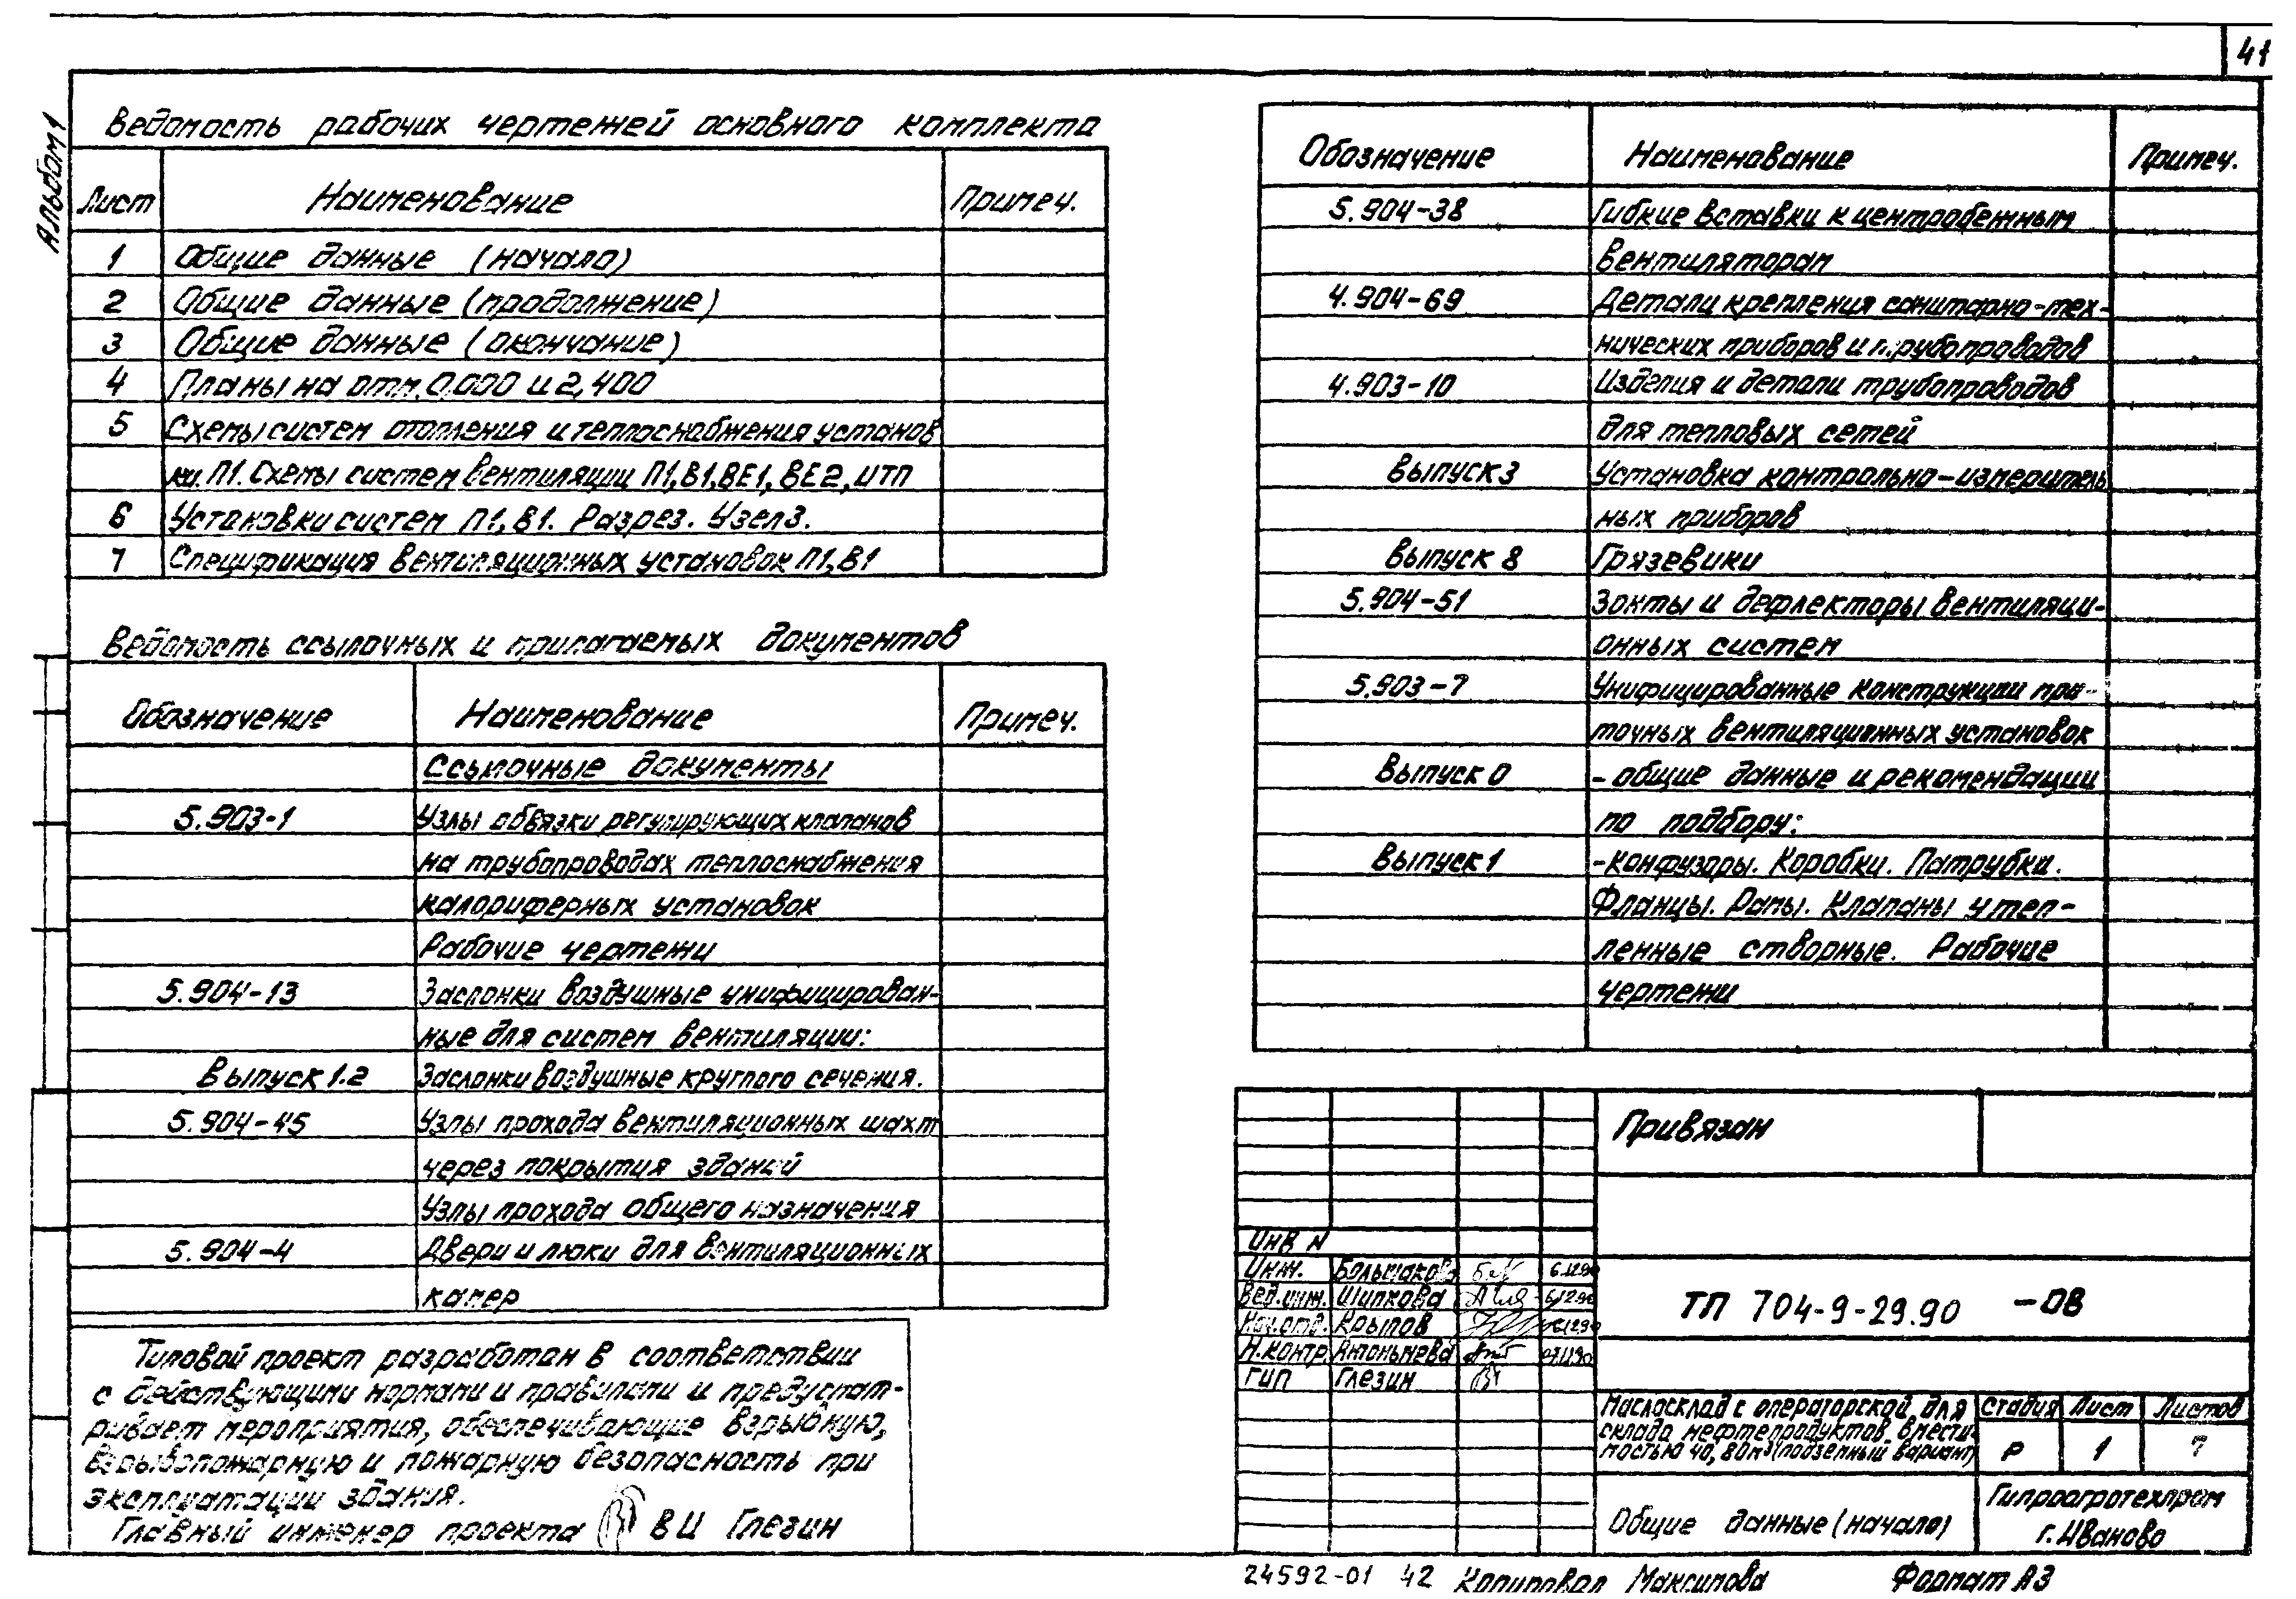 41
Альбом 1
Ведомость рабочих чертежей основного комплекта
Лист Наименование Примеч.
1 Общие данные (начало)
2 Общие данные (продолжение)
3 Общие данные (окончание)
4 Планы на отм. 0.000 и 2,400
5 Схемы систем отопления и теплоснабжения установ
ки П1. Схемы систем вентиляции П1, В1, ВЕ1, ВЕ2, ИТП
6 Установки систем П1, В1. Разрез. Узел 3.
7 Спецификация вентиляционных установок П1, В1
Ведомость ссылочных и прилагаемых документов
Обозначение Наименование Примеч.
Ссылочные документы
5.903-1 Узлы обвязки регулирующих клапанов
на трубопроводах теплоснабжения
калориферных установок
Рабочие чертежи
5.904-13 Заслонки воздушные унифицирован-
ные для систем вентиляции:
Выпуск 1.2 Заслонки воздушные круглого сечения.
5.904-45 Узлы прохода вентиляционных шахт
через покрытия зданий
Узлы прохода общего назначения
5.904-4 Двери и люки для вентиляционных
камер
Типовой проект разработан в соответствии
с действующими нормами и правилами и предусмат-
ривает мероприятия, обеспечивающие взрывную,
взрывопожарную и пожарную безопасность при
эксплуатации здания.
Главный инженер проекта В И Глезин
Обозначение Наименование Примеч.
5.904-38 Гибкие вставки к центробежным
вентиляторам
4.904-69 Детали крепления санитарно-тех-
нических приборов и трубопроводов
4.903-10 Изделия и детали трубопроводов
для тепловых сетей
Выпуск 3 Установка контрольно-измеритель
ных приборов
Выпуск 8 Грязевики
5.904-51 Зонты и дефлекторы вентиляци-
онных систем
5.903-7 Унифицированные конструкции при-
точных вентиляционных установок
Выпуск 0 - общие данные и рекомендации
по подбору;
Выпуск 1 - Конфузоры. Коробки. Патрубки.
Фланцы. Рамы. Клапаны утеп-
ленные створные. Рабочие
чертежи
Привязан
Инв N
Инж. Большакова 6.12.90
Вед.инж. Шипкова 6.12.90
Нач.отд. Крылов
Н.контр. Антоньчева
ГИП Глезин
ТП 704-9-29.90 -ОВ
Маслосклад с операторской для
склада нефтепродуктов вмести-
мостью 40, 80 м³ (подземный вариант)
Стадия Лист Листов
Р 1 7
Общие данные (начало)
Гипроагротехпром
г. Иваново
24592-01 42 Копировал Максимова Формат А3